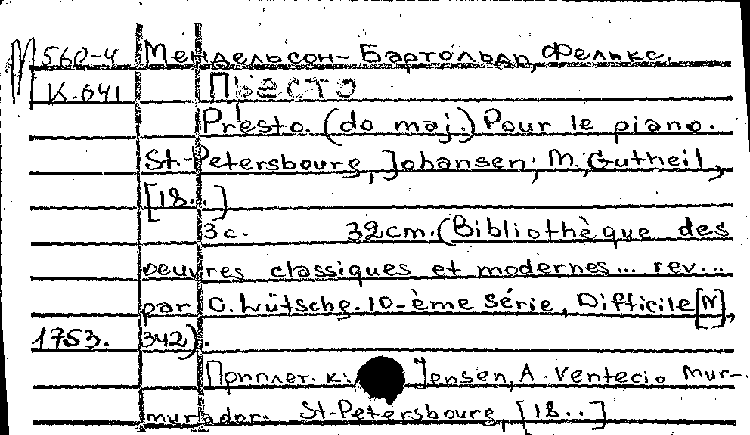 М 560-4 Мендельсон-Бартольди, Феликс.
К.641 Престо
Presto. (do maj.) Pour le piano.
St-Petersbourg, Johansen; M, Gutheil,
[18..]
3 с. 32cm. (Bibliothèque des
oeuvres classiques et modernes... rev...
par O. Lütschg. 10-ème Série, Difficile [N],
1753. 342).
Приплет. к: Jensen, A. Ventecio mur-
murador. St-Petersbourg, [18..]